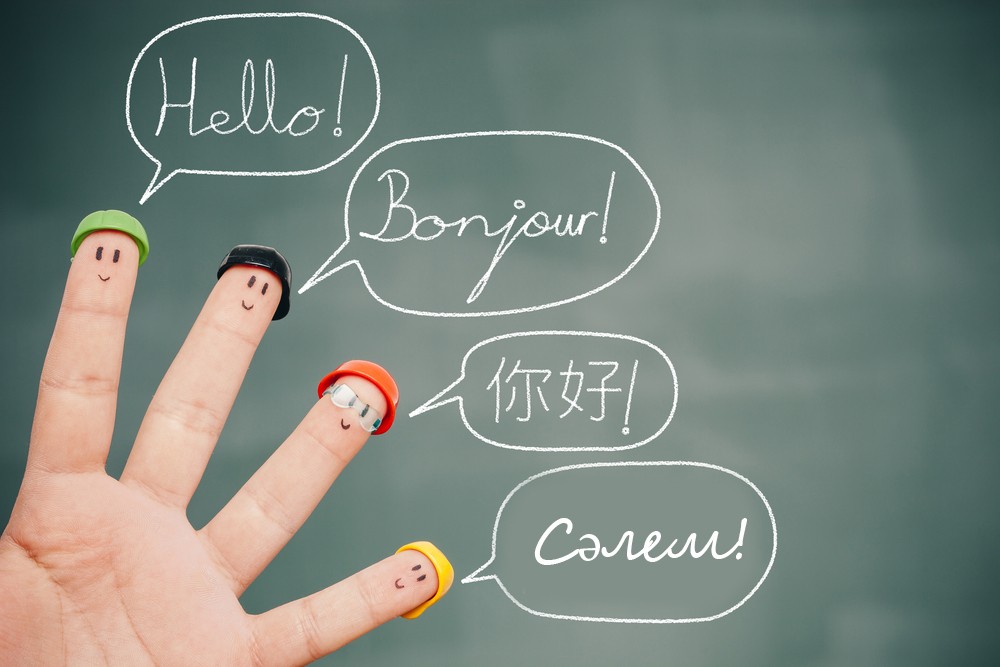 Hello!
Bonjour!
你好!
Сәлем!